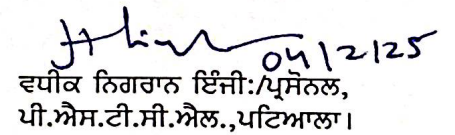 04/2/25
ਵਧੀਕ ਨਿਗਰਾਨ ਇੰਜੀ:/ਪ੍ਰਸੋਨਲ,
ਪੀ.ਐਸ.ਟੀ.ਸੀ.ਐਲ.,ਪਟਿਆਲਾ।